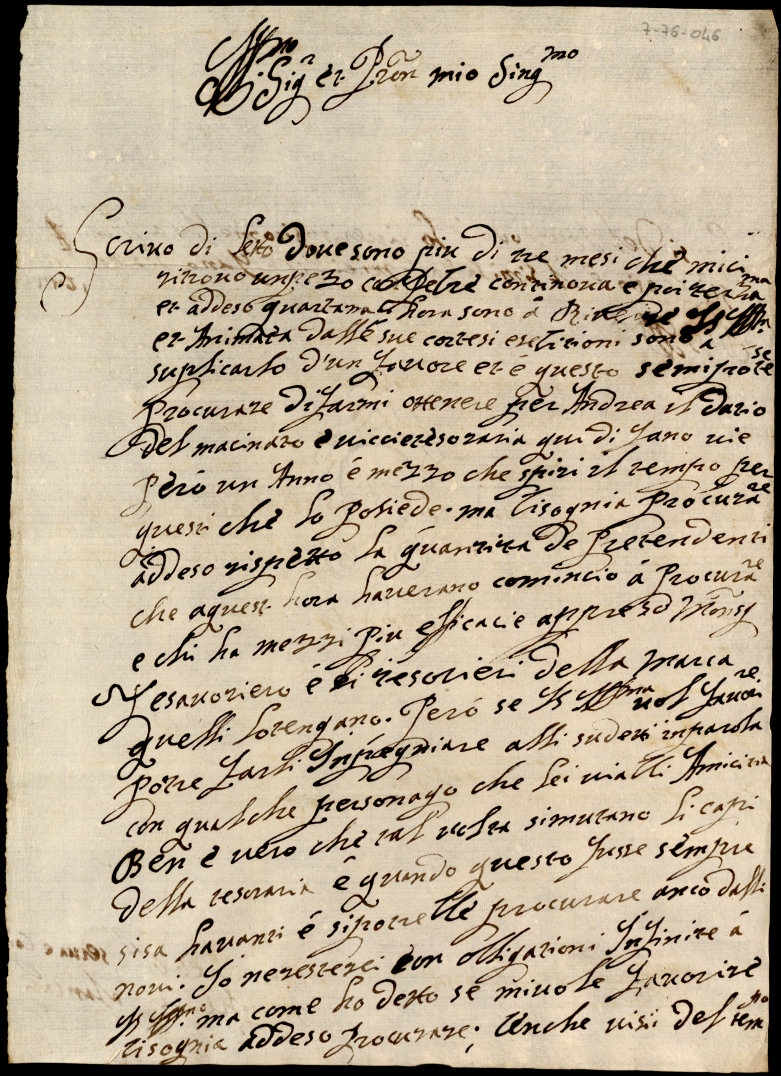 7-76-046
Ill.mo
Sig.r et Pron mio Sing.mo
Scrivo di letto dove sono piu di tre mesi che mici
ritrovo un pezzo con febre continova e poi terzana
et addeso quartana hora sono á
et Animata dalle sue cortesi esebitioni sono á
suplicarlo d'un favore et é questo se mi potese
procurare di farmi ottenere per Andrea il datio
del macinato é qui di Fano vie
peró un Anno é mezzo che spiri il tempo per
questi che lo posiede. ma bisognia procurare
addeso rispetto la quantita de Pretendenti
che aquest hora haverano comincio á procurare
e chi ha mezzi piu efficacie appreso Monsg
Tesavoriero é li tesorieri della marca
quelli lo tengano. Peró se VS Ill.ma vol favorire
potre farli Inpegniare alli sudetti in parola
con qualche personago che lei via li Amicitia
Ben é vero che tal volta si mutano li capi
della tesoraria é quando questo fusse sempre
si sa havanti é si potrebbe procurare anco dalli
novi. Io ne resterei con obligationi Infinite á
VS Ill.ma ma come ho detto se mi vole favorire
bisognia addeso procurare; Anche visii del tempo